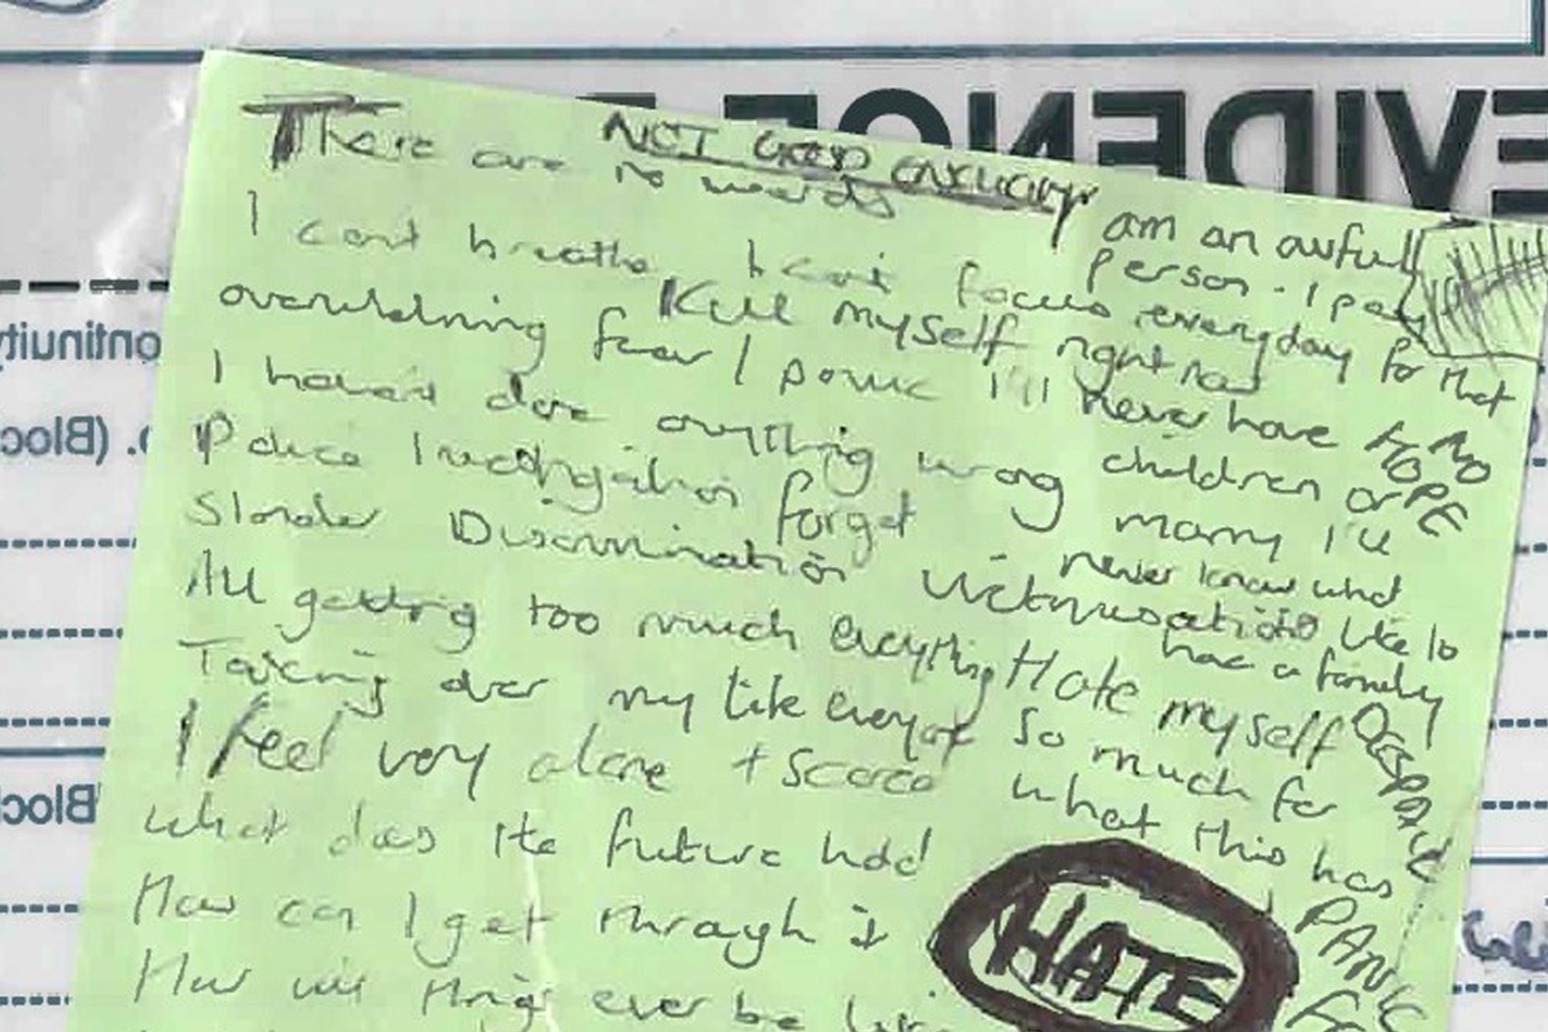 NOT GOOD ENOUGH
There are no words
I cant breathe I cant focus
overwhelming fear I panic
I havent done anything wrong
Police Investigation forget
Slander Discrimination Victimisation
All getting too much everything
Taking over my life
I feel very alone + scared
What does the future hold
How can I get through it
How will things ever be
Kill myself right now
am an awful
person. I pay
everyday for that
I'll never have
children or
marry I'll
never know what
like to
have a family
Hate myself
so much for
what this has
NO
HOPE
DESPAIR
PANIC
HATE
EVIDENCE
ontinuity
(Block
Block